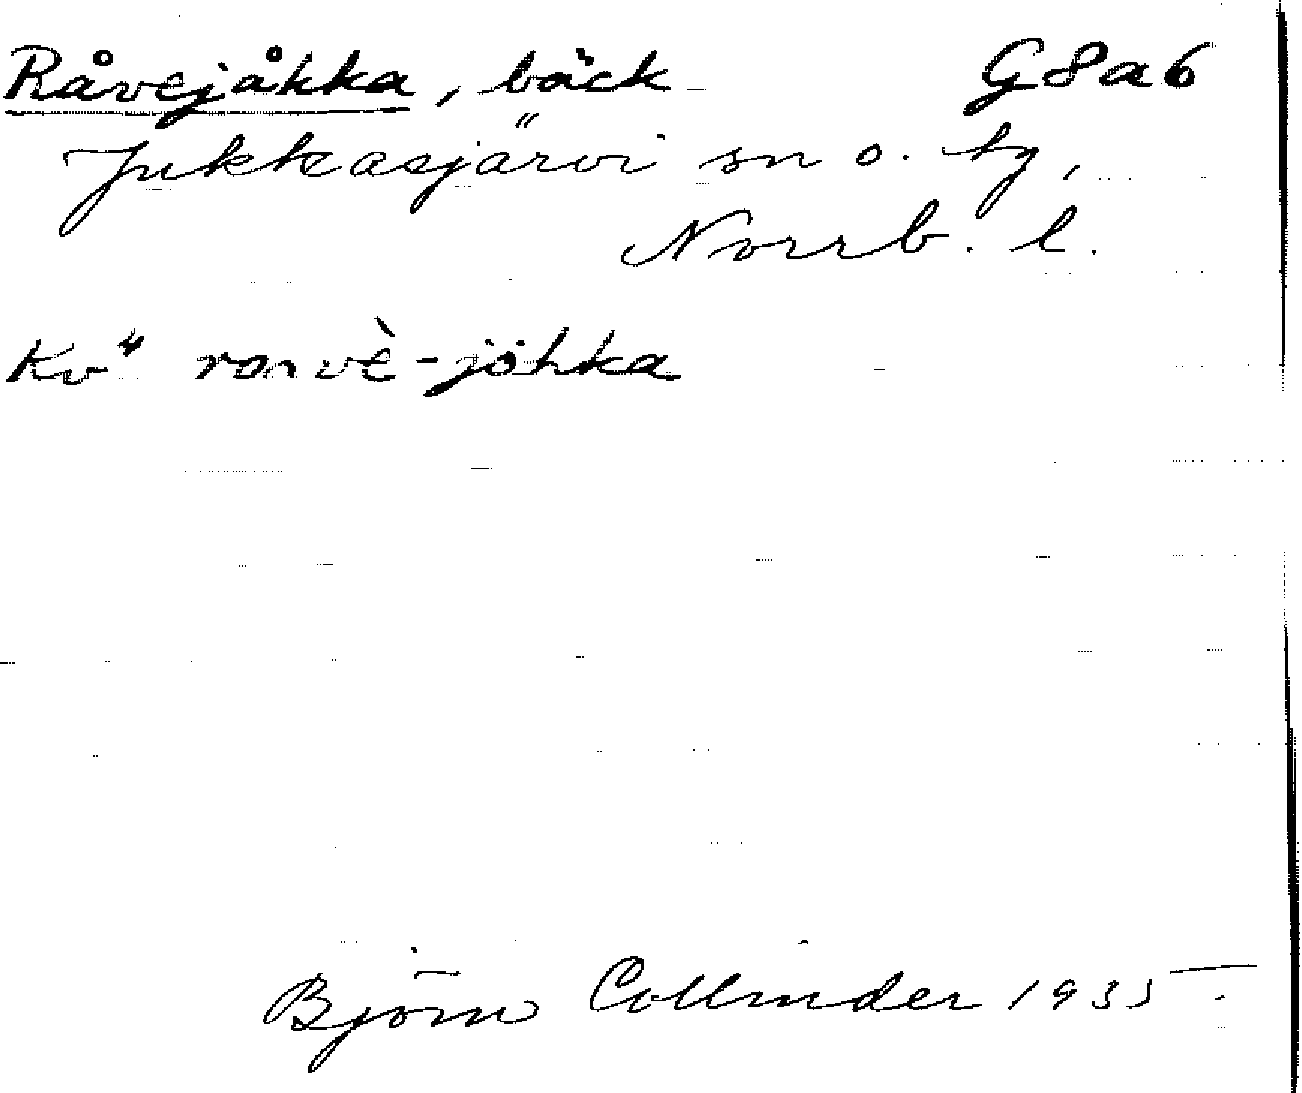 Råvejåkka, bäck G8a6
Jukkasjärvi sn o. tg,
Norrb. l.
Kv⁴ -jöhka
Björn Collinder 1935.